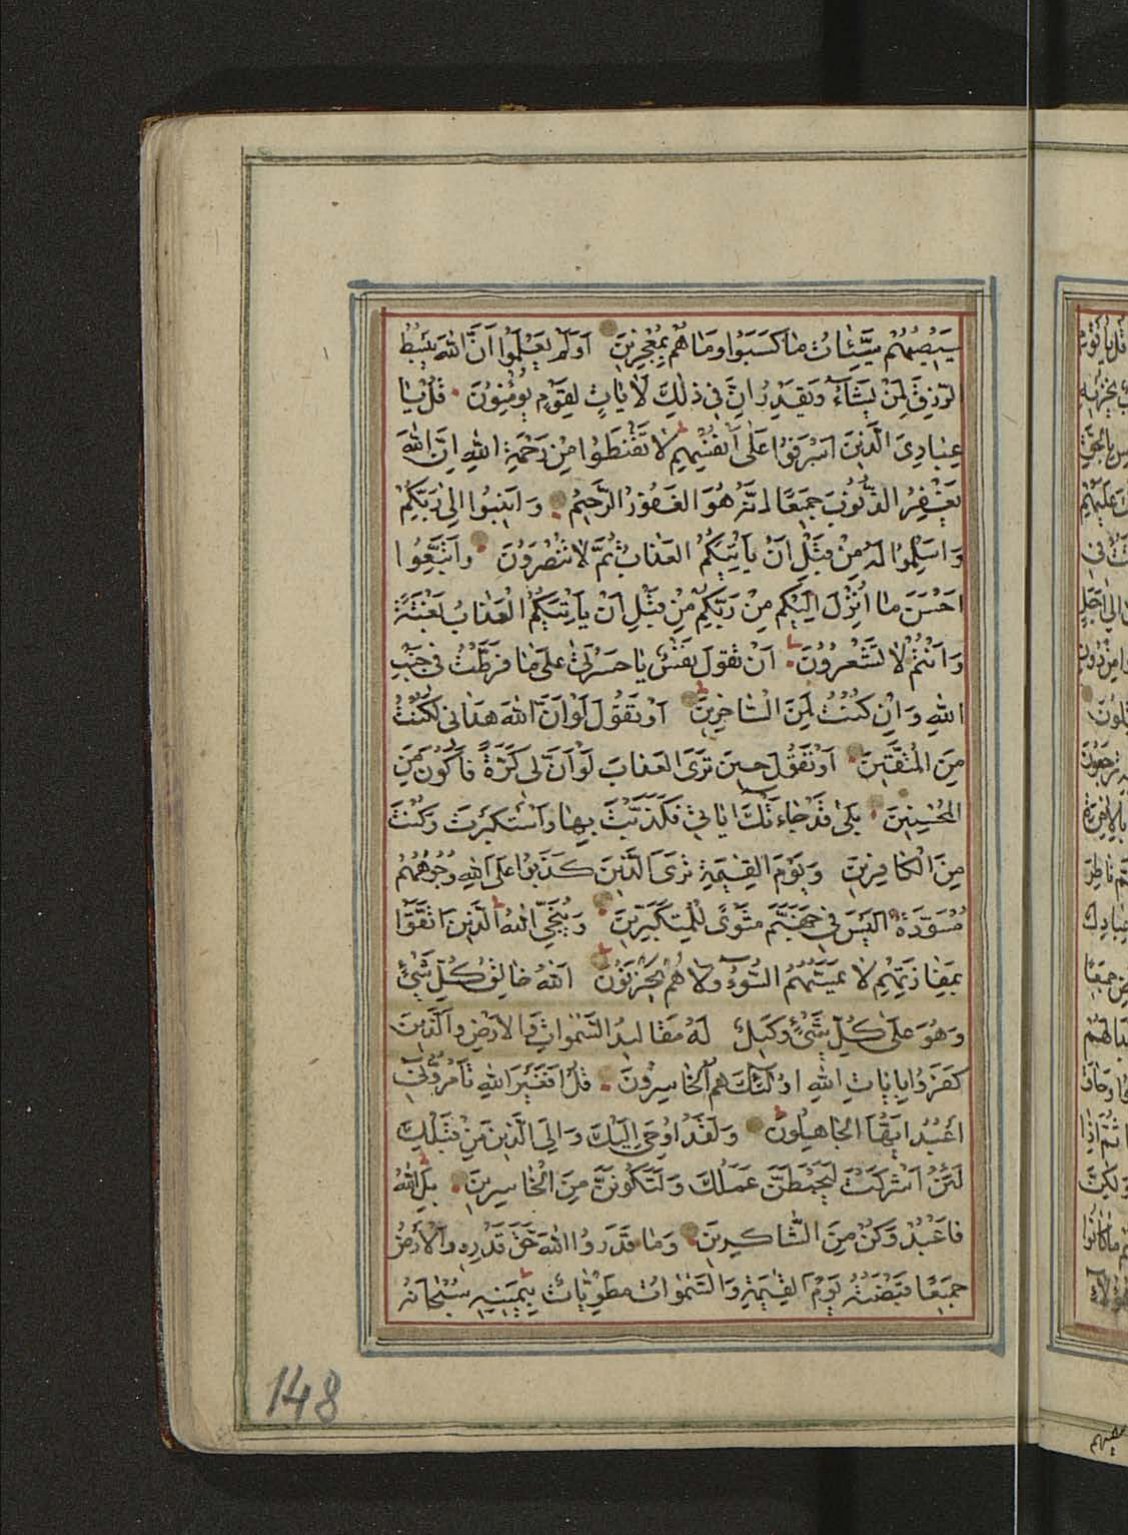 سَيُصِيبُهُمْ سَيِّئَاتُ مٰا كَسَبُوا وَمٰا هُمْ بِمُعْجِزِينَ اَوَلَمْ يَعْلَمُوا اَنَّ اللّٰهَ يَبْسُطُ
الرِّزْقَ لِمَنْ يَشَآءُ وَيَقْدِرُ اِنَّ فِي ذٰلِكَ لَاٰيٰاتٍ لِقَوْمٍ يُؤْمِنُونَ قُلْ يٰا
عِبٰادِيَ الَّذِينَ اَسْرَفُوا عَلٰى اَنْفُسِهِمْ لٰا تَقْنَطُوا مِنْ رَحْمَةِ اللّٰهِ اِنَّ اللّٰهَ
يَغْفِرُ الذُّنُوبَ جَمِيعًا اِنَّهُ هُوَ الْغَفُورُ الرَّحِيمُ وَاَنِيبُوا اِلٰى رَبِّكُمْ
وَاَسْلِمُوا لَهُ مِنْ قَبْلِ اَنْ يَأْتِيَكُمُ الْعَذٰابُ ثُمَّ لٰا تُنْصَرُونَ وَاتَّبِعُوا
اَحْسَنَ مٰا اُنْزِلَ اِلَيْكُمْ مِنْ رَبِّكُمْ مِنْ قَبْلِ اَنْ يَأْتِيَكُمُ الْعَذٰابُ بَغْتَةً
وَاَنْتُمْ لٰا تَشْعُرُونَ اَنْ تَقُولَ نَفْسٌ يٰا حَسْرَتٰى عَلٰى مٰا فَرَّطْتُ فِي جَنْبِ
اللّٰهِ وَاِنْ كُنْتُ لَمِنَ السّٰاخِرِينَ اَوْ تَقُولَ لَوْ اَنَّ اللّٰهَ هَدٰانِي لَكُنْتُ
مِنَ الْمُتَّقِينَ اَوْ تَقُولَ حِينَ تَرَى الْعَذٰابَ لَوْ اَنَّ لِي كَرَّةً فَاَكُونَ مِنَ
الْمُحْسِنِينَ بَلٰى قَدْ جٰاءَتْكَ اٰيٰاتِي فَكَذَّبْتَ بِهٰا وَاسْتَكْبَرْتَ وَكُنْتَ
مِنَ الْكٰافِرِينَ وَيَوْمَ الْقِيٰمَةِ تَرَى الَّذِينَ كَذَبُوا عَلَى اللّٰهِ وُجُوهُهُمْ
مُسْوَدَّةٌ اَلَيْسَ فِي جَهَنَّمَ مَثْوًى لِلْمُتَكَبِّرِينَ وَيُنَجِّي اللّٰهُ الَّذِينَ اتَّقَوْا
بِمَفٰازَتِهِمْ لٰا يَمَسُّهُمُ السُّوءُ وَلٰا هُمْ يَحْزَنُونَ اَللّٰهُ خٰالِقُ كُلِّ شَيْءٍ
وَهُوَ عَلٰى كُلِّ شَيْءٍ وَكِيلٌ لَهُ مَقٰالِيدُ السَّمٰوٰاتِ وَالْاَرْضِ وَالَّذِينَ
كَفَرُوا بِاٰيٰاتِ اللّٰهِ اُولٰئِكَ هُمُ الْخٰاسِرُونَ قُلْ اَفَغَيْرَ اللّٰهِ تَأْمُرُونِّي
اَعْبُدُ اَيُّهَا الْجٰاهِلُونَ وَلَقَدْ اُوحِيَ اِلَيْكَ وَاِلَى الَّذِينَ مِنْ قَبْلِكَ
لَئِنْ اَشْرَكْتَ لَيَحْبَطَنَّ عَمَلُكَ وَلَتَكُونَنَّ مِنَ الْخٰاسِرِينَ بَلِ اللّٰهَ
فٰاعْبُدْ وَكُنْ مِنَ الشّٰاكِرِينَ وَمٰا قَدَرُوا اللّٰهَ حَقَّ قَدْرِهِ وَالْاَرْضُ
جَمِيعًا قَبْضَتُهُ يَوْمَ الْقِيٰمَةِ وَالسَّمٰوٰاتُ مَطْوِيّٰاتٌ بِيَمِينِهِ سُبْحٰانَهُ
148